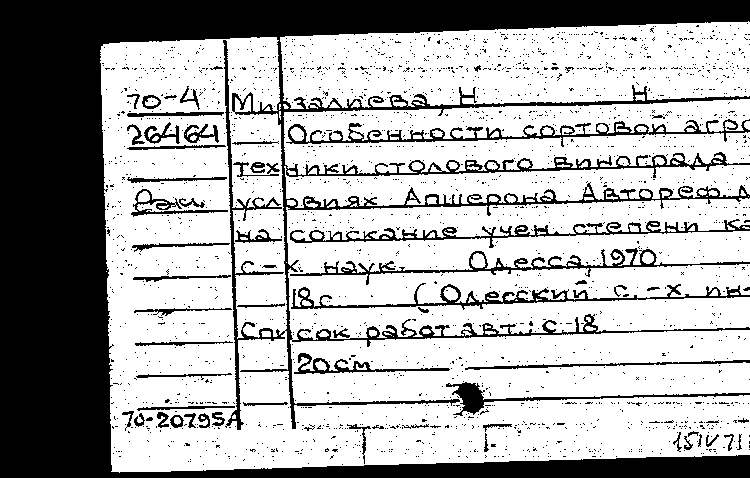 70-4 Мирзалиева, Н Н
26464 Особенности сортовой агро
техники столового винограда
условиях Апшерона. Автореф. д
на соискание учен. степени ка
с-х. наук. Одесса, 1970.
18с (Одесский с.-х. ин-
Список работ авт.: с 18
20см
70-20795А
15IV71